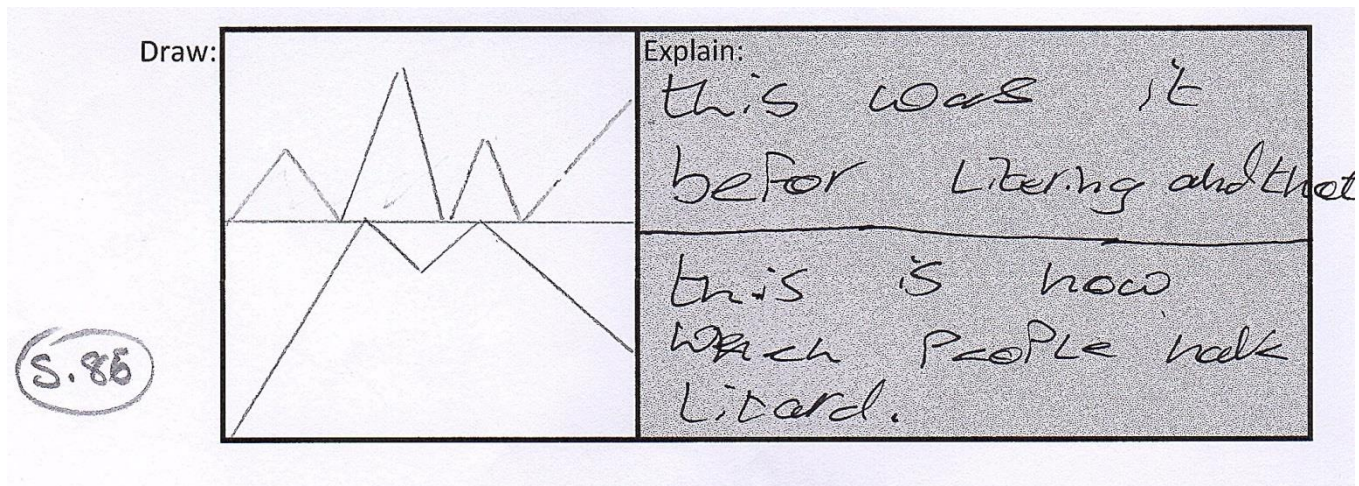 Draw:
Explain:
this was it
befor Litering and that
this is now
which PeoPLe
Litard.
S.86